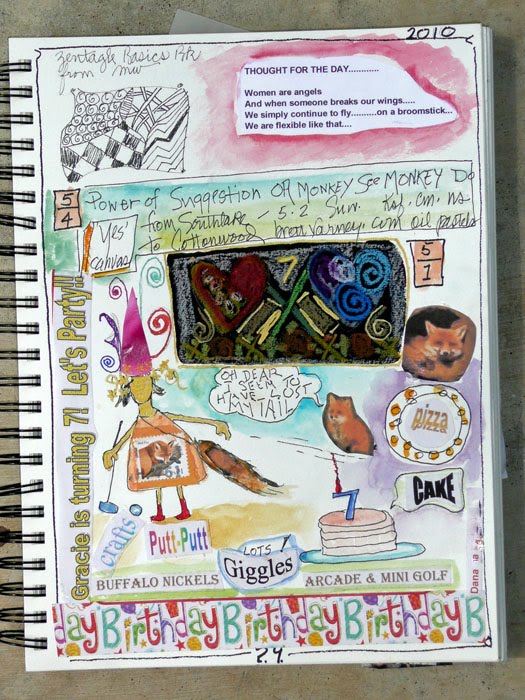 2010
zentagle Basics Bk
from mw
THOUGHT FOR THE DAY............
Women are angels
And when someone breaks our wings.....
We simply continue to fly..........on a broomstick...
We are flexible like that....
5
4
Power of Suggestion OR MONKEY See MONKEY Do
from Southlake - 5:2 Sun. Ksf. cm. ns
to Cottonwood oil pastels
"Yes"
canvas
5
1
7
Gracie is turning 7! Let's Party!!
OH DEAR
I SEEM TO
HAVE LOST
MY TAIL
pizza
CAKE
7
crafts
Putt-Putt
LOTS
Giggles
BUFFALO NICKELS
ARCADE & MINI GOLF
Dana
day Birthday Birthday Birthday B